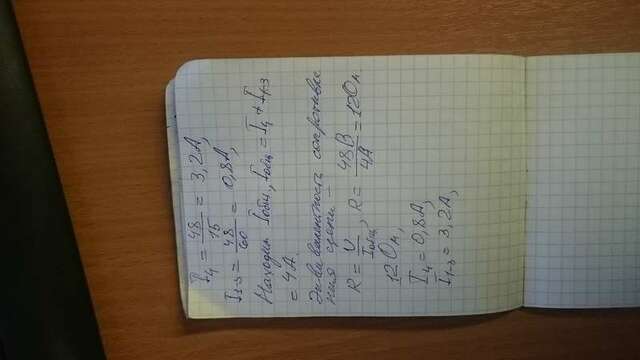 I₄ = 48/15 = 3,2А,
I₁₋₃ = 48/60 = 0,8А,
Находим Iобщ, Iобщ = I₄ + I₁₋₃
= 4А.
Эквивалентность сопротивле
ния цепи –
R = U/Iобщ, R = 48В/4А = 12Ом.
12Ом,
I₄ = 0,8А,
I₁₋₃ = 3,2А,